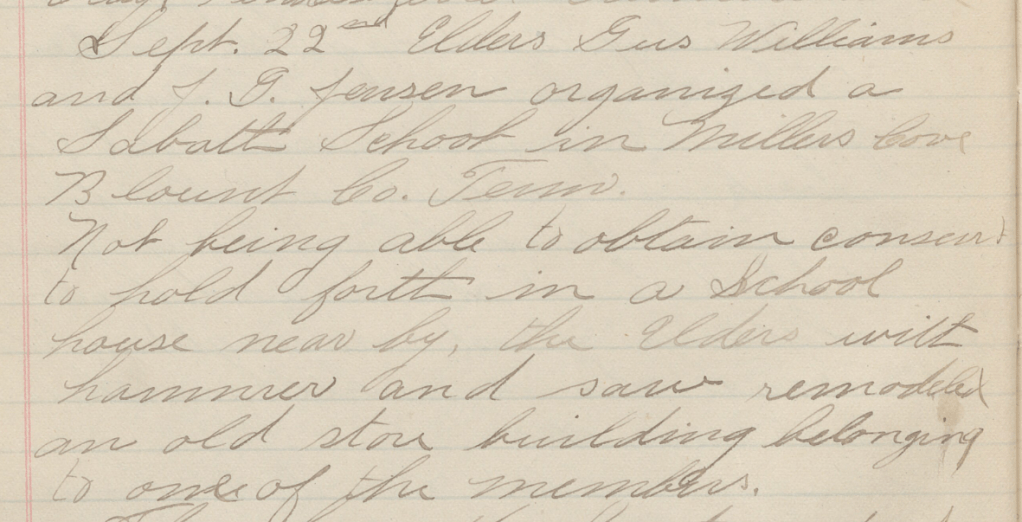 Sept. 22nd Elders Gus Williams
and J. G. Jensen organized a
Sabath School in Millers Cove
Blount Co. Tenn.
Not being able to obtain consent
to hold forth in a School
house near by, the Elders with
hammer and saw remodeled
an old store building belonging
to one of the members.